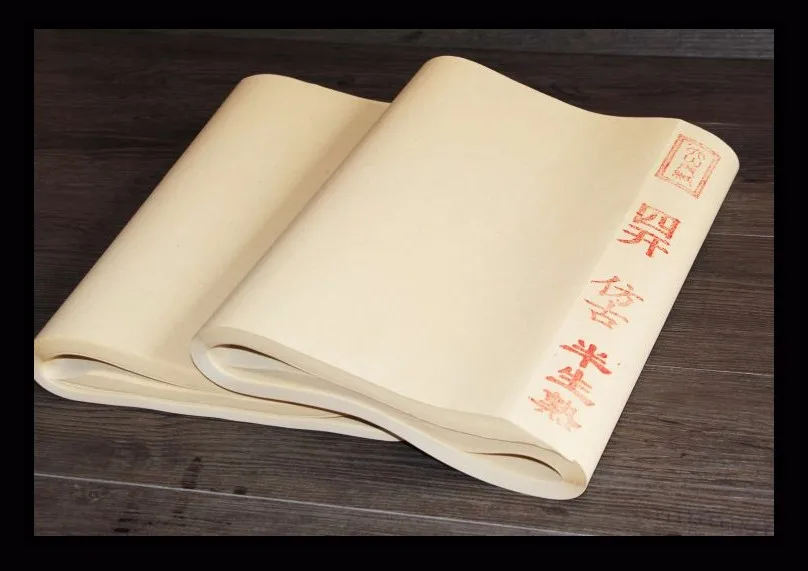 四开
仿古
半生熟